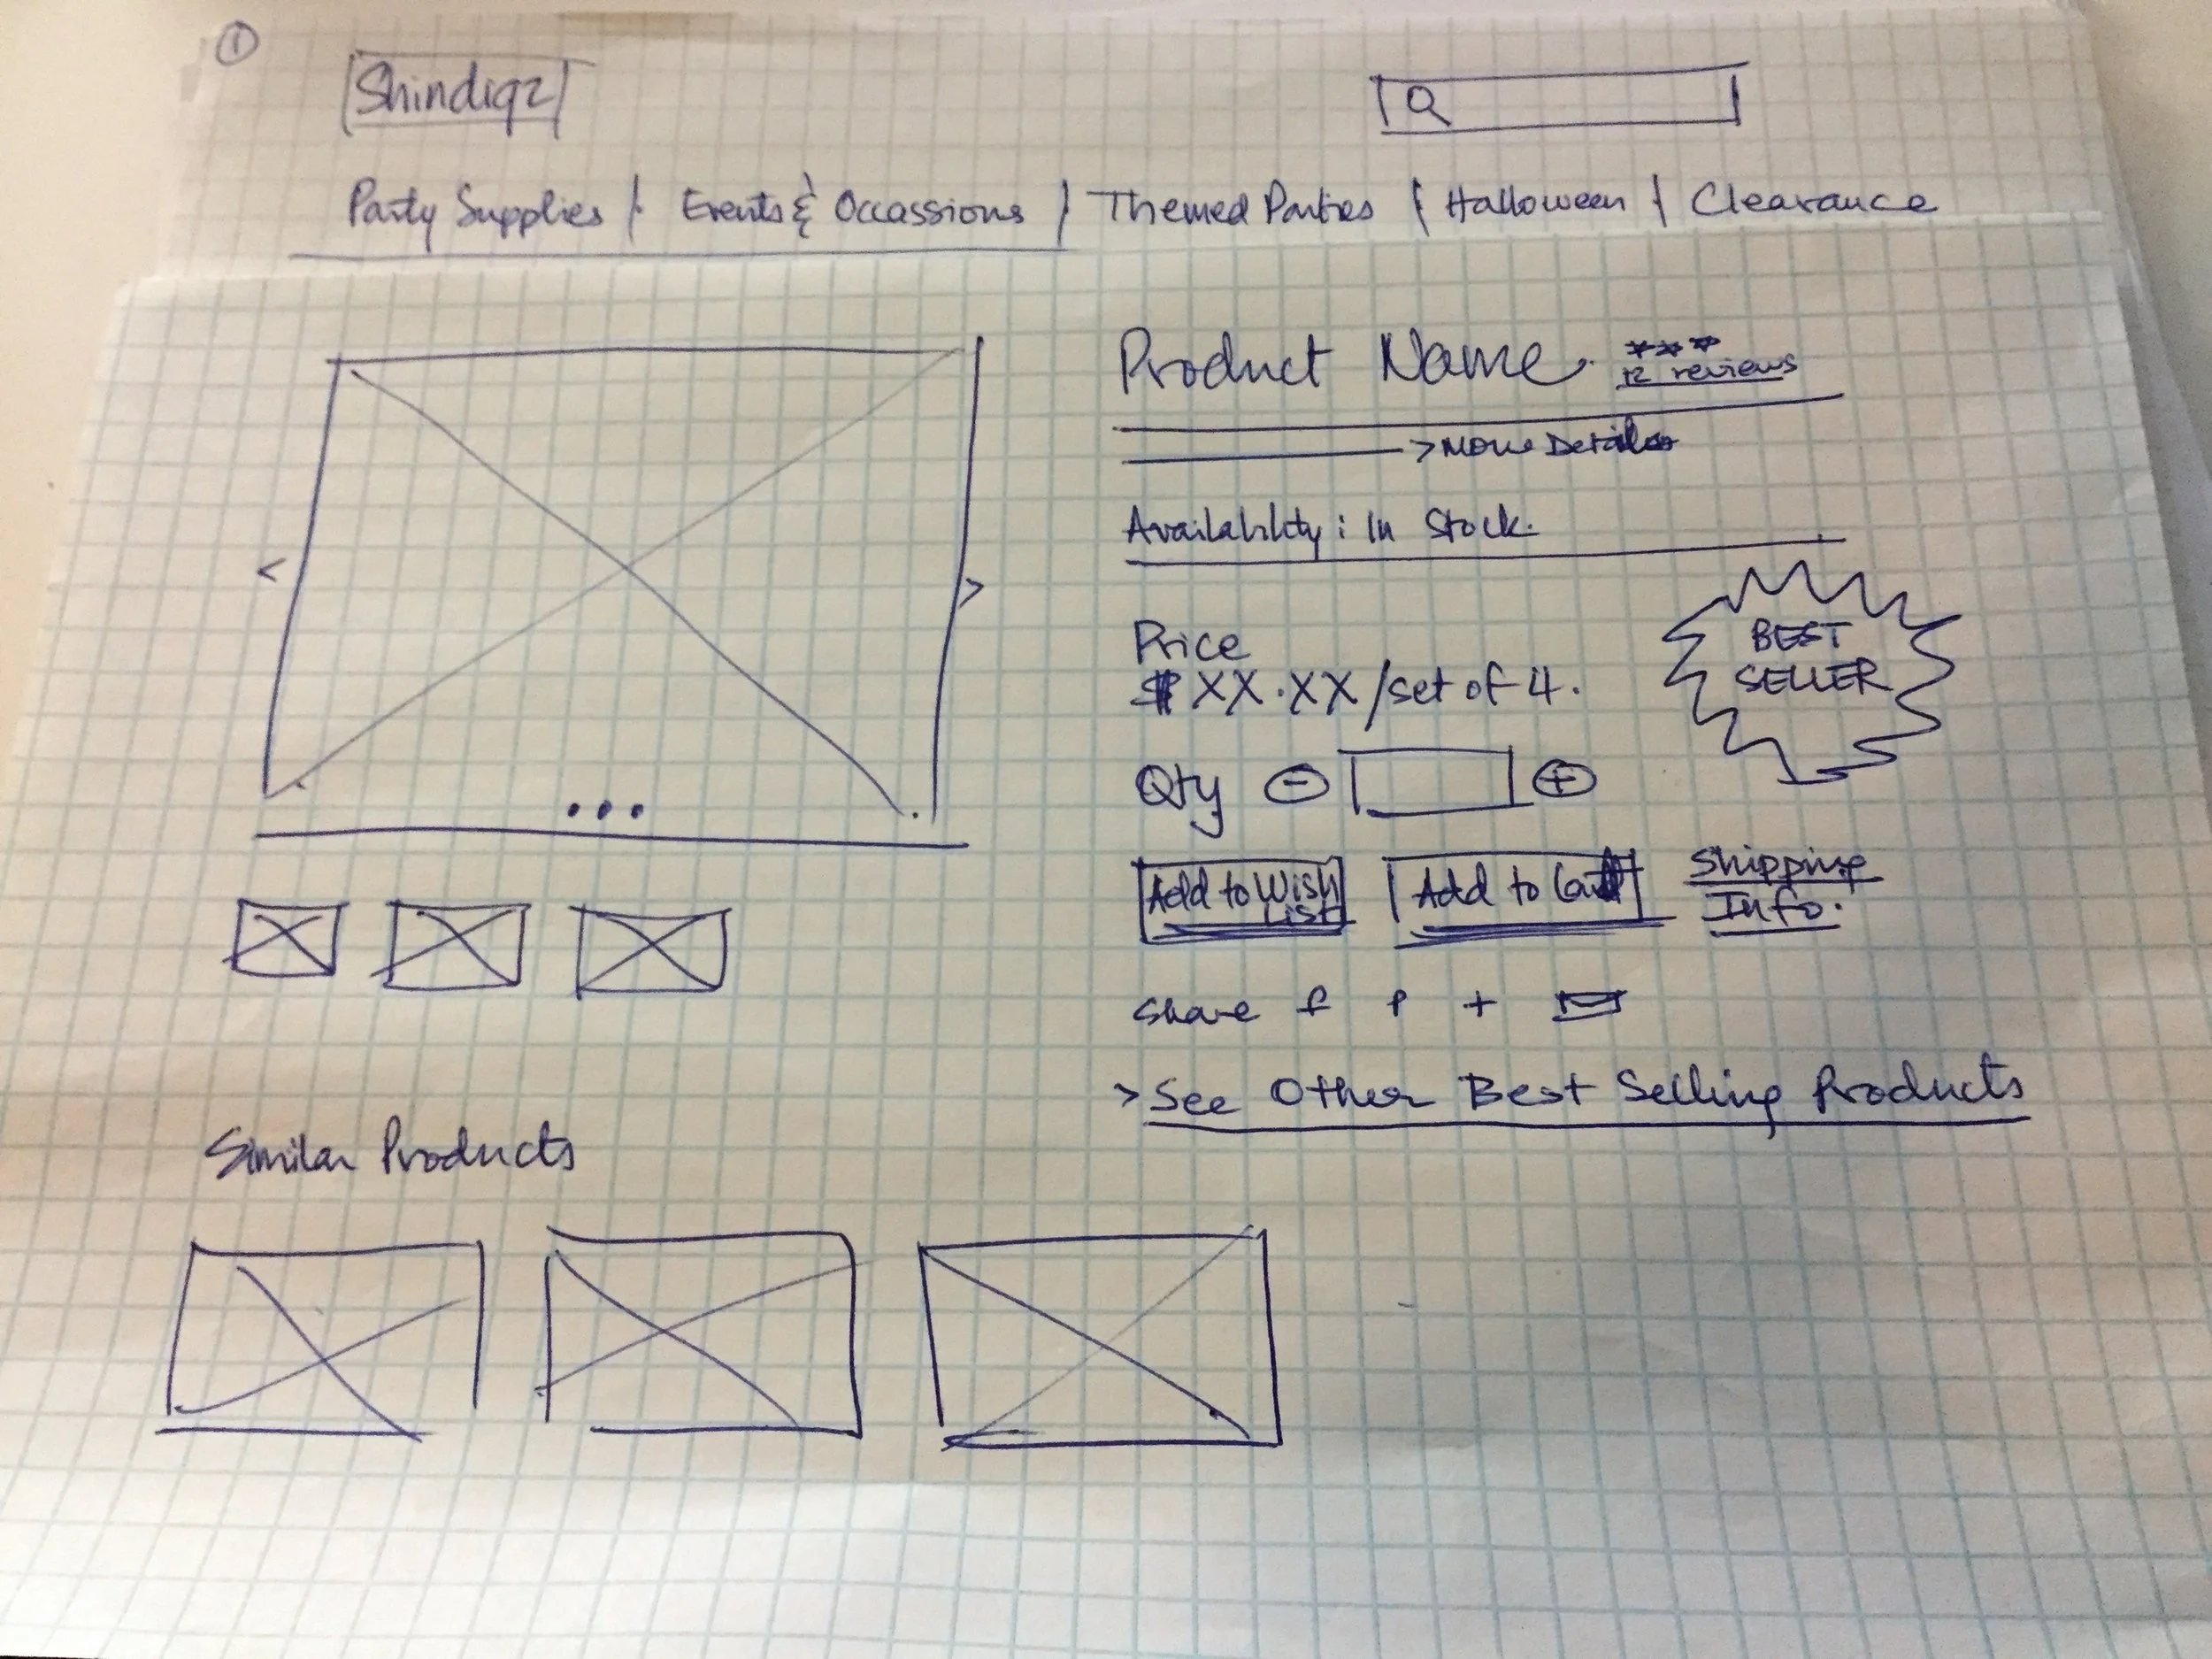 1
Shindigz
Party Supplies | Events & Occassions | Themed Parties | Halloween | Clearance
Product Name
***
12 reviews
> More Details
Availability : In Stock.
Price
$ XX.XX /set of 4.
BEST
SELLER
Qty - +
Add to Wish
List
Add to Cart
Shipping
Info.
Share f p +
> See Other Best Selling Products
< >
Similar Products